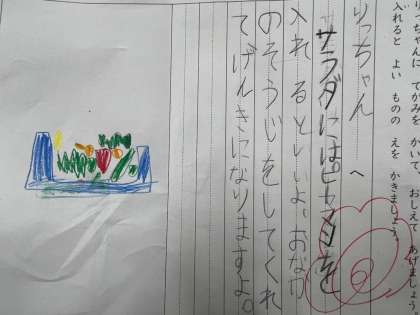 りっちゃんに てがみを かいて、おしえて あげましょう
入れると よい ものの えを かきましょう。
りっちゃんへ
サラダには を
入れるといいよ。おなか
のそうじをしてくれ
てげんきになりますよ。